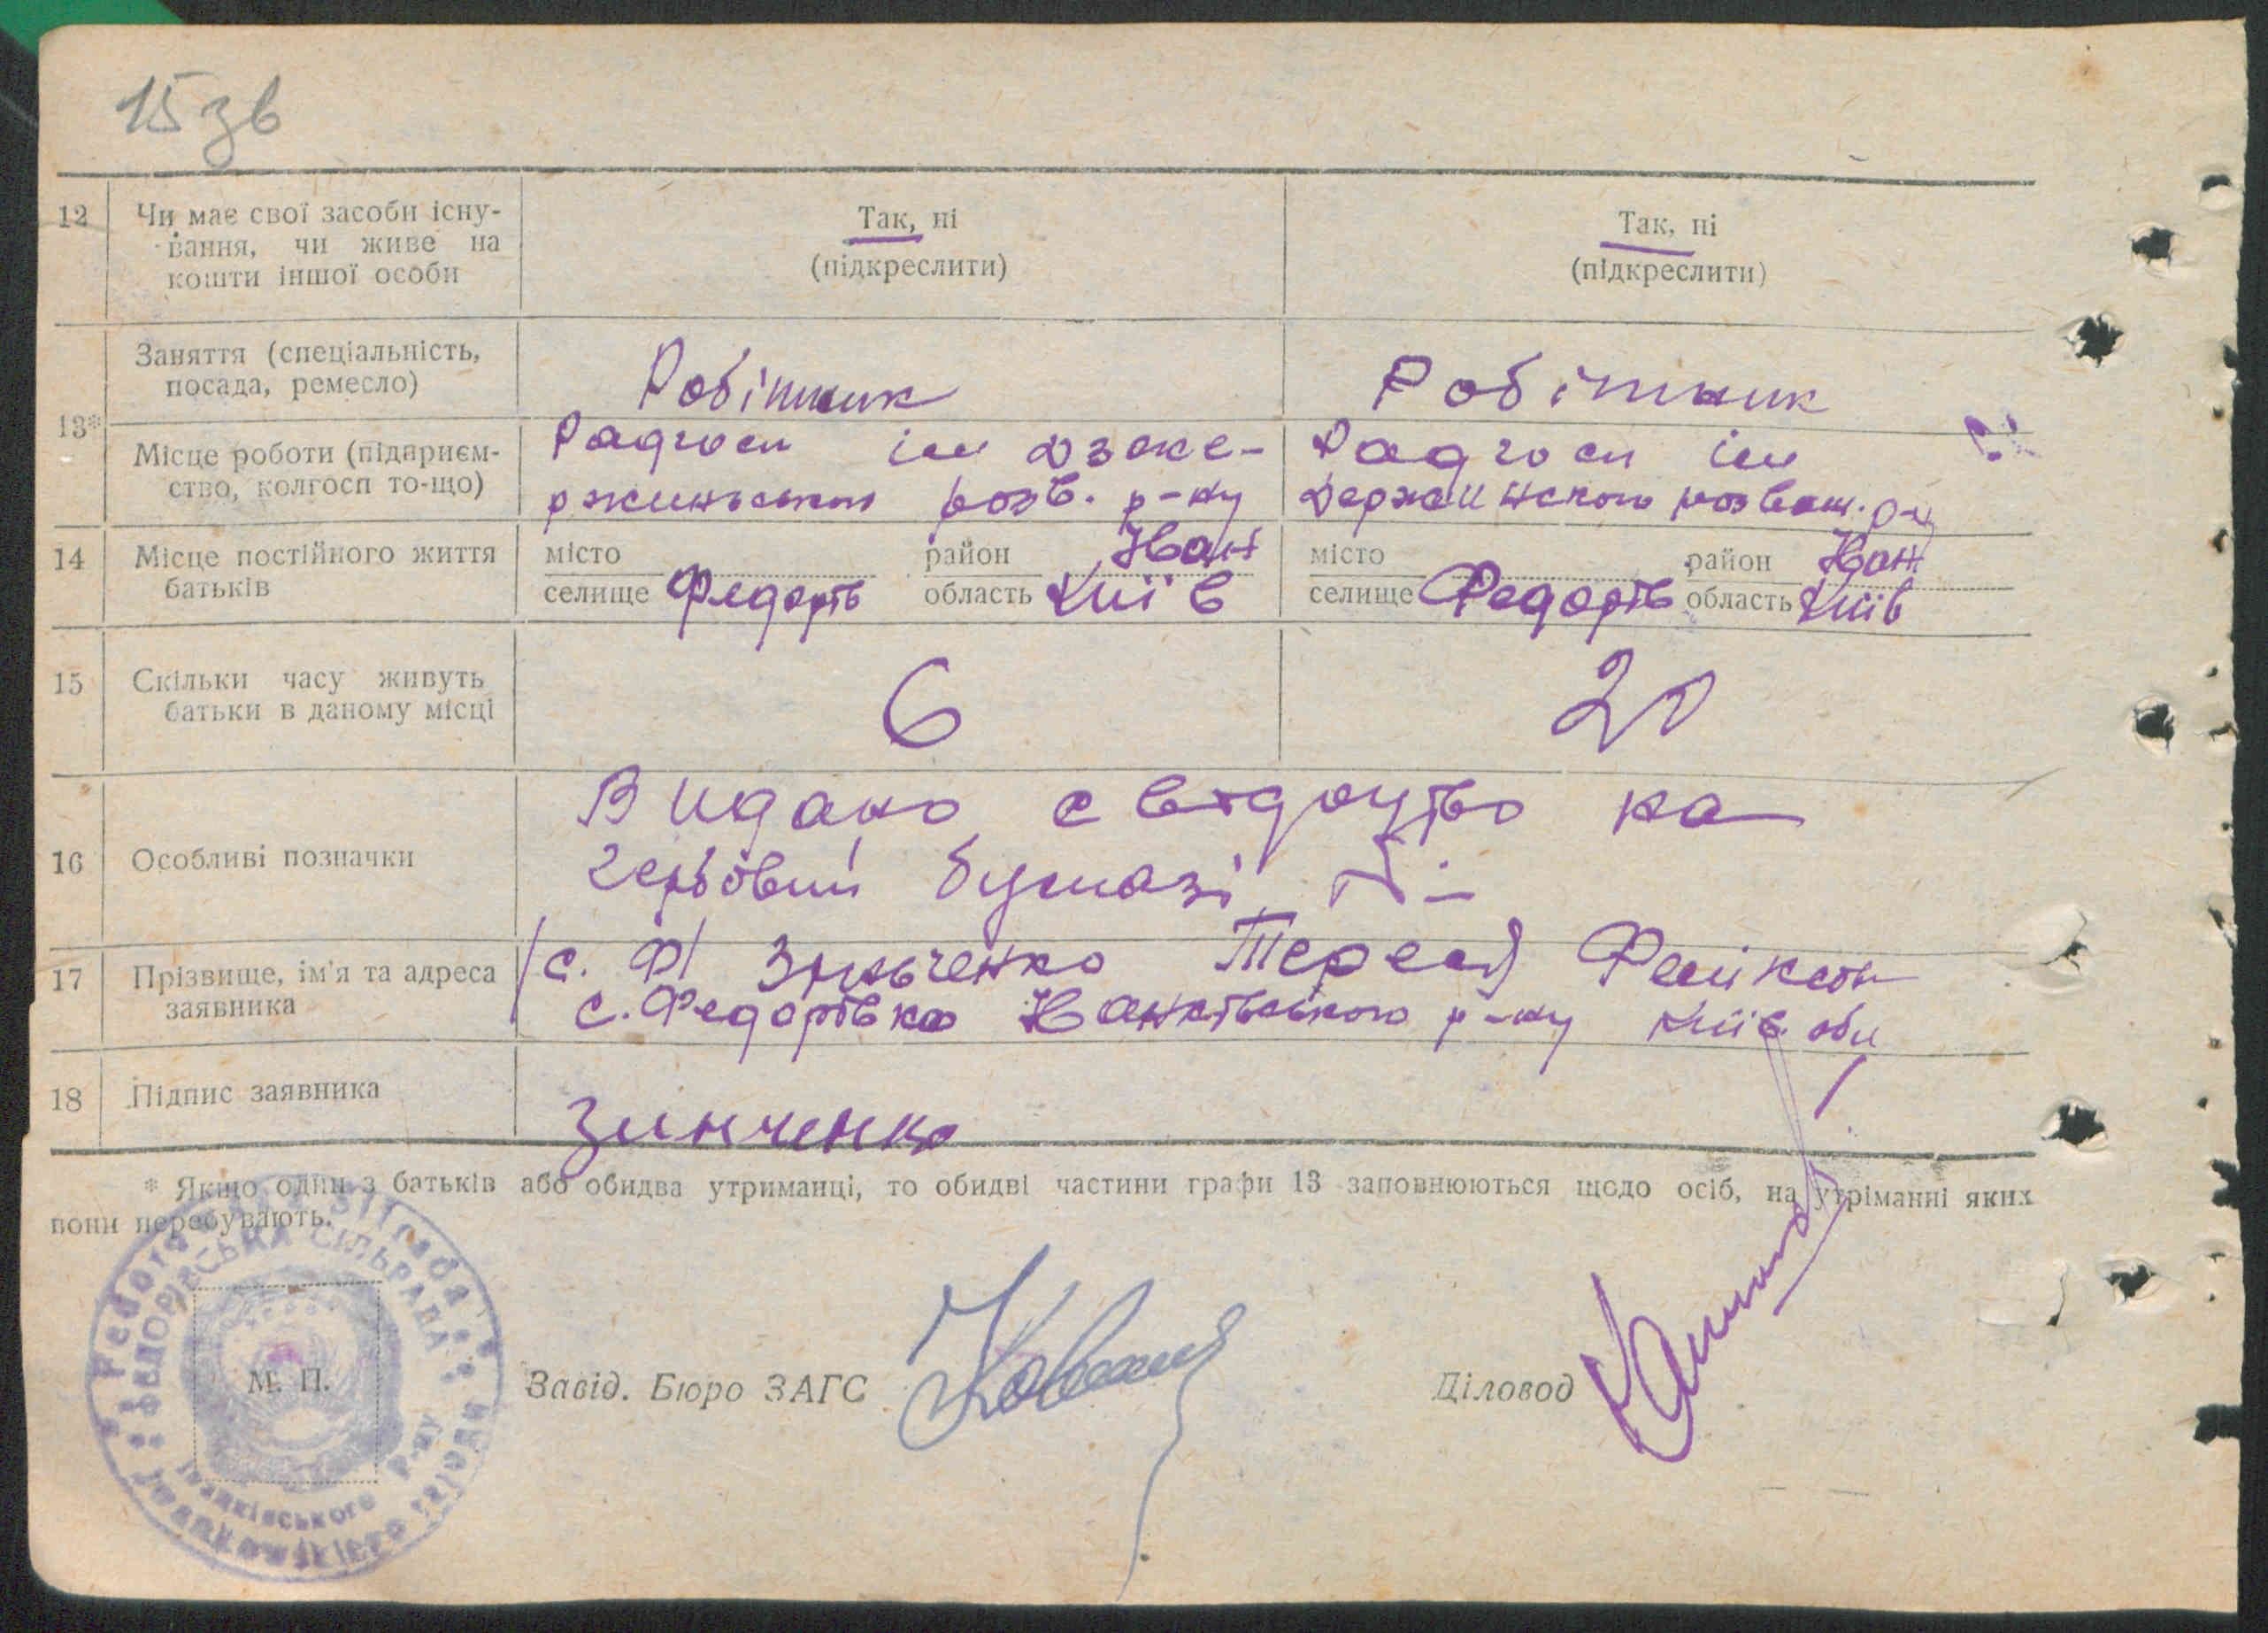 15 зв
12 Чи має свої засоби існу-
вання, чи живе на
кошти іншої особи
Так, ні
(підкреслити)
Так, ні
(підкреслити)
13*
Заняття (спеціальність,
посада, ремесло)
Робітник
Робітник
Місце роботи (підприєм-
ство, колгосп то-що)
Радгосп ім Дзеже-
ржинського розв. р-ну
Радгосп ім
Держинского розваж. р-н
14 Місце постійного життя
батьків
місто район Іван
селище Федорів область Київ
місто район Іван
селище Федорів область Київ
15 Скільки часу живуть
батьки в даному місці
6
20
16 Особливі позначки
Видано свідоцтво на
гербовий бумазі
17 Прізвище, ім'я та адреса
заявника
/с. Ф/ Зінченко Тереся
с. Федорівка Іванківського р-ну Київ обл
18 Підпис заявника
Зинченко
* Якщо один з батьків або обидва утриманці, то обидві частини графи 13 заповнюються щодо осіб, на утріманні яких
вони перебувають.
ФЕДОРІВСЬКА СІЛЬРАДА
Іванківського р-ну
М. П.
Завід. Бюро ЗАГС
Діловод